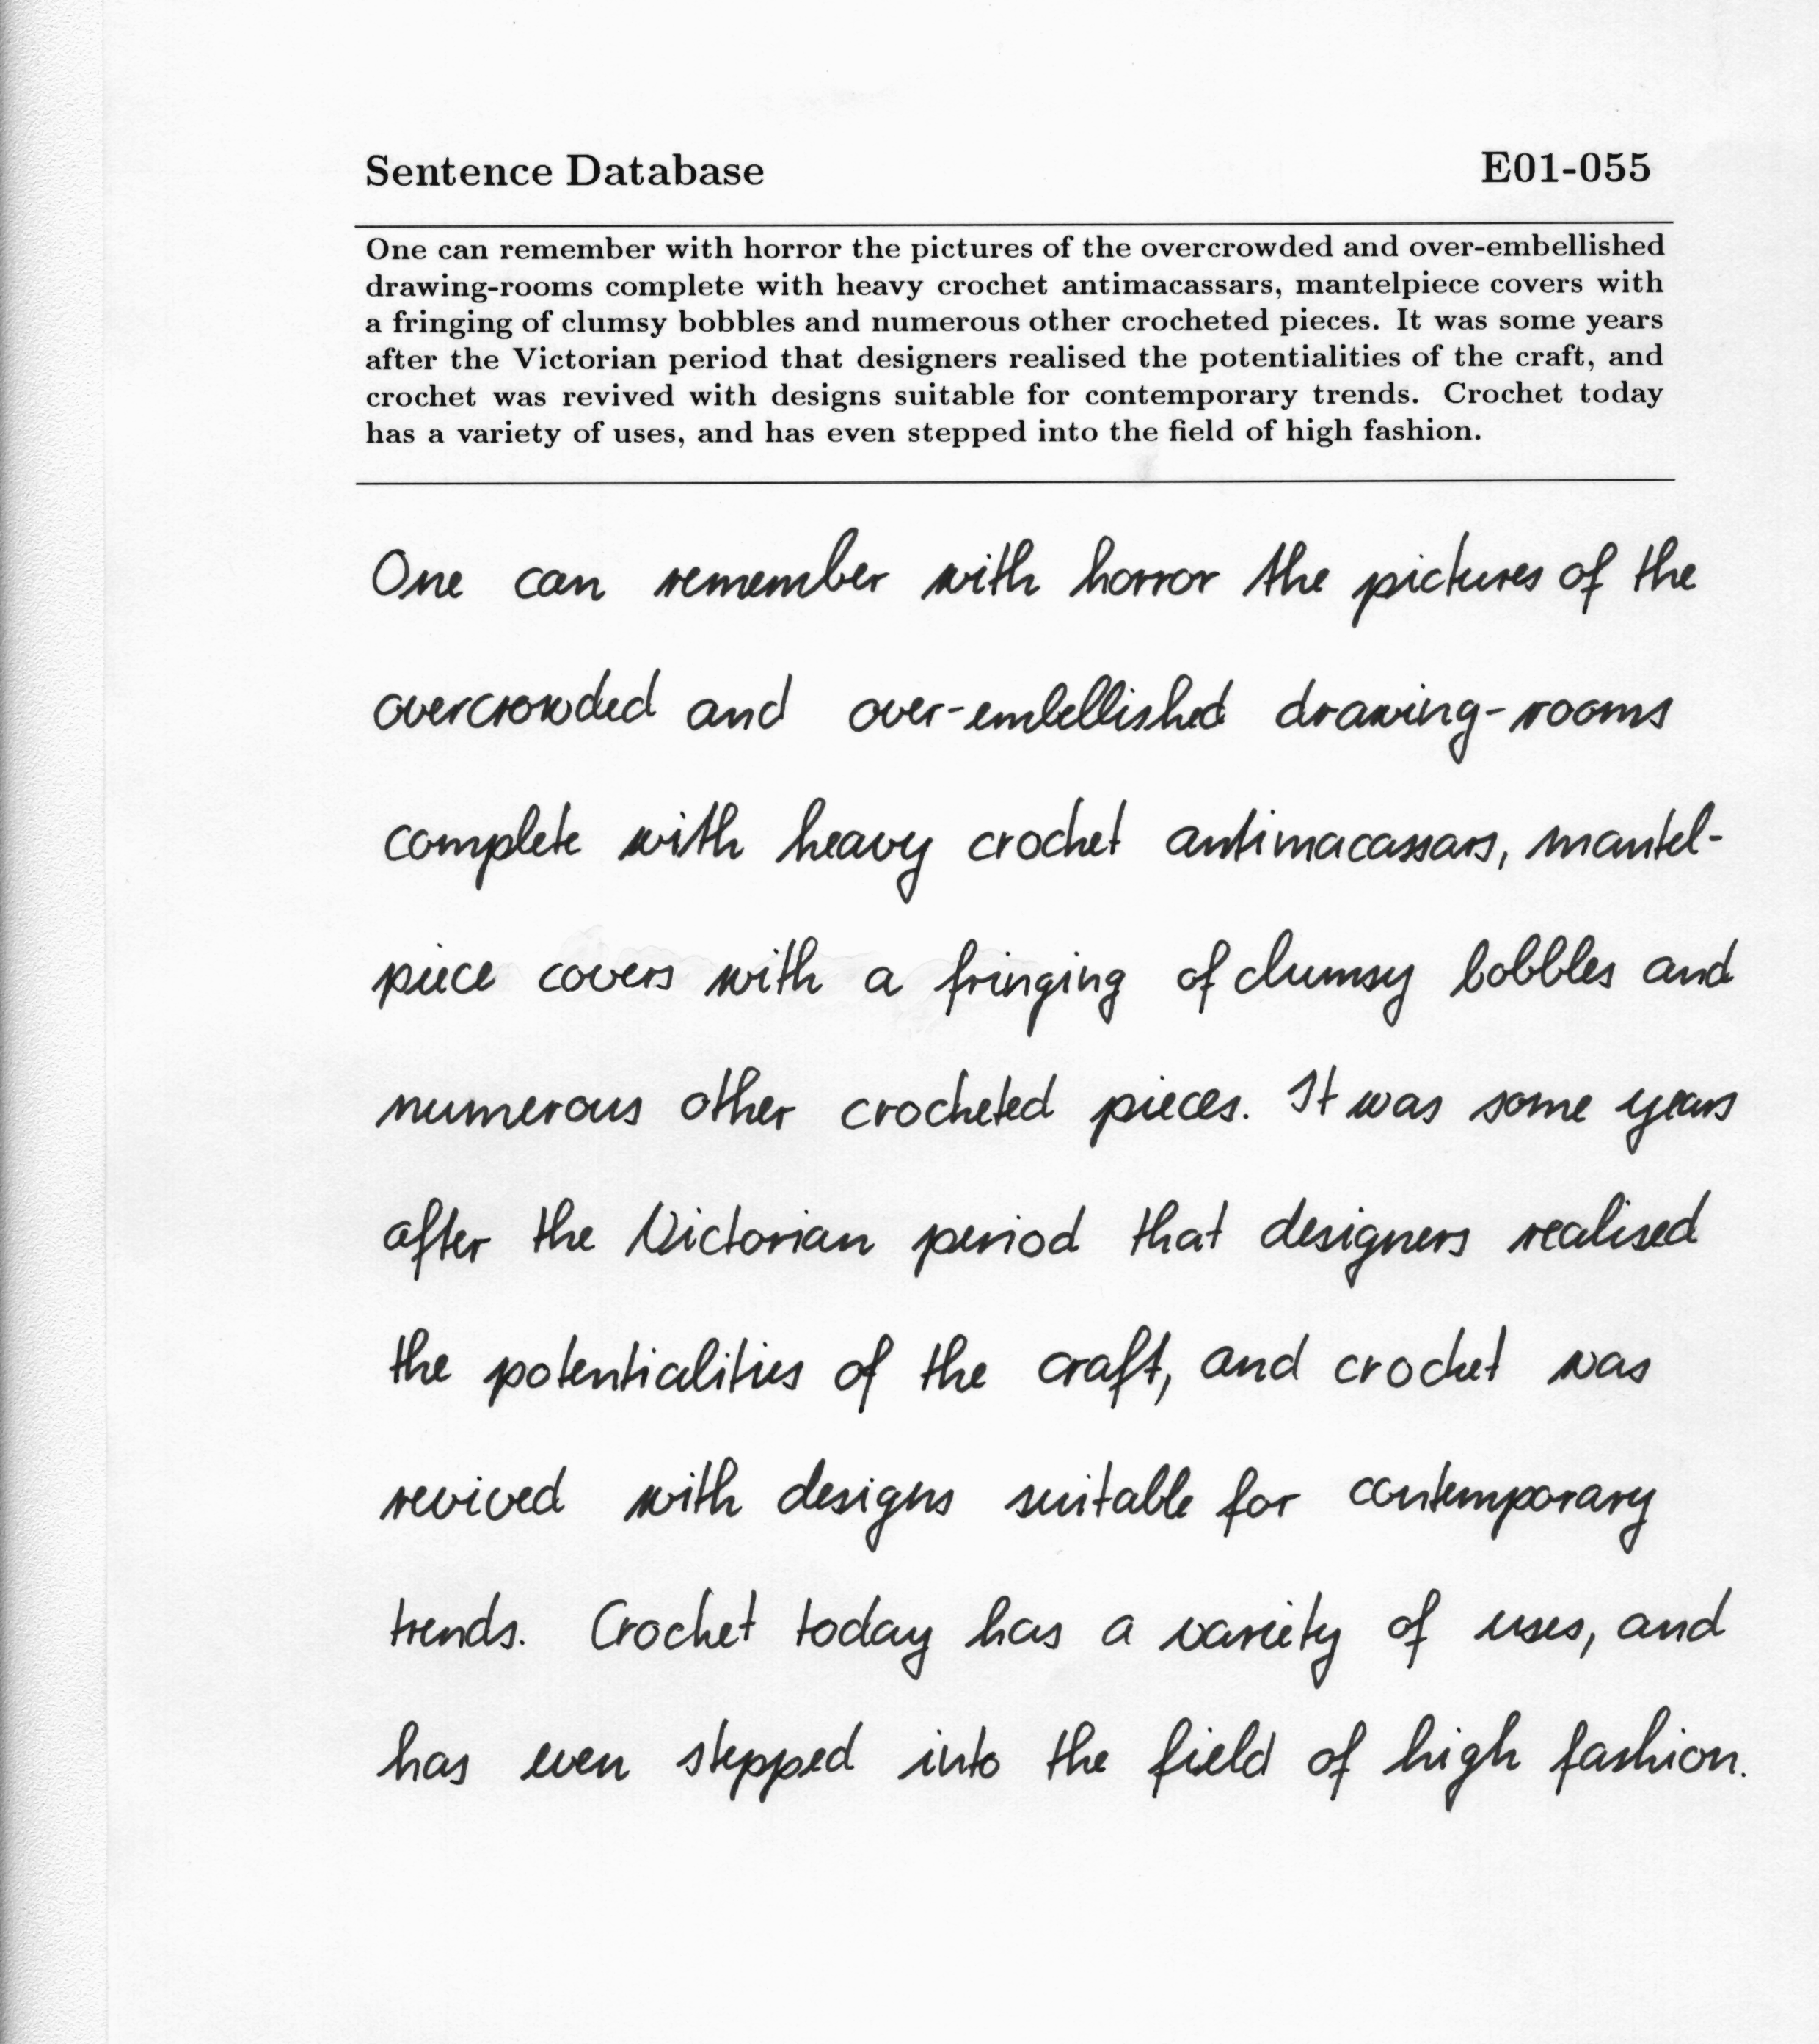 Sentence Database E01-055
One can remember with horror the pictures of the overcrowded and over-embellished
drawing-rooms complete with heavy crochet antimacassars, mantelpiece covers with
a fringing of clumsy bobbles and numerous other crocheted pieces. It was some years
after the Victorian period that designers realised the potentialities of the craft, and
crochet was revived with designs suitable for contemporary trends. Crochet today
has a variety of uses, and has even stepped into the field of high fashion.
One can remember with horror the pictures of the
overcrowded and over-embellished drawing-rooms
complete with heavy crochet antimacassars, mantel-
piece covers with a fringing of clumsy bobbles and
numerous other crocheted pieces. It was some years
after the Victorian period that designers realised
the potentialities of the craft, and crochet was
revived with designs suitable for contemporary
trends. Crochet today has a variety of uses, and
has even stepped into the field of high fashion.